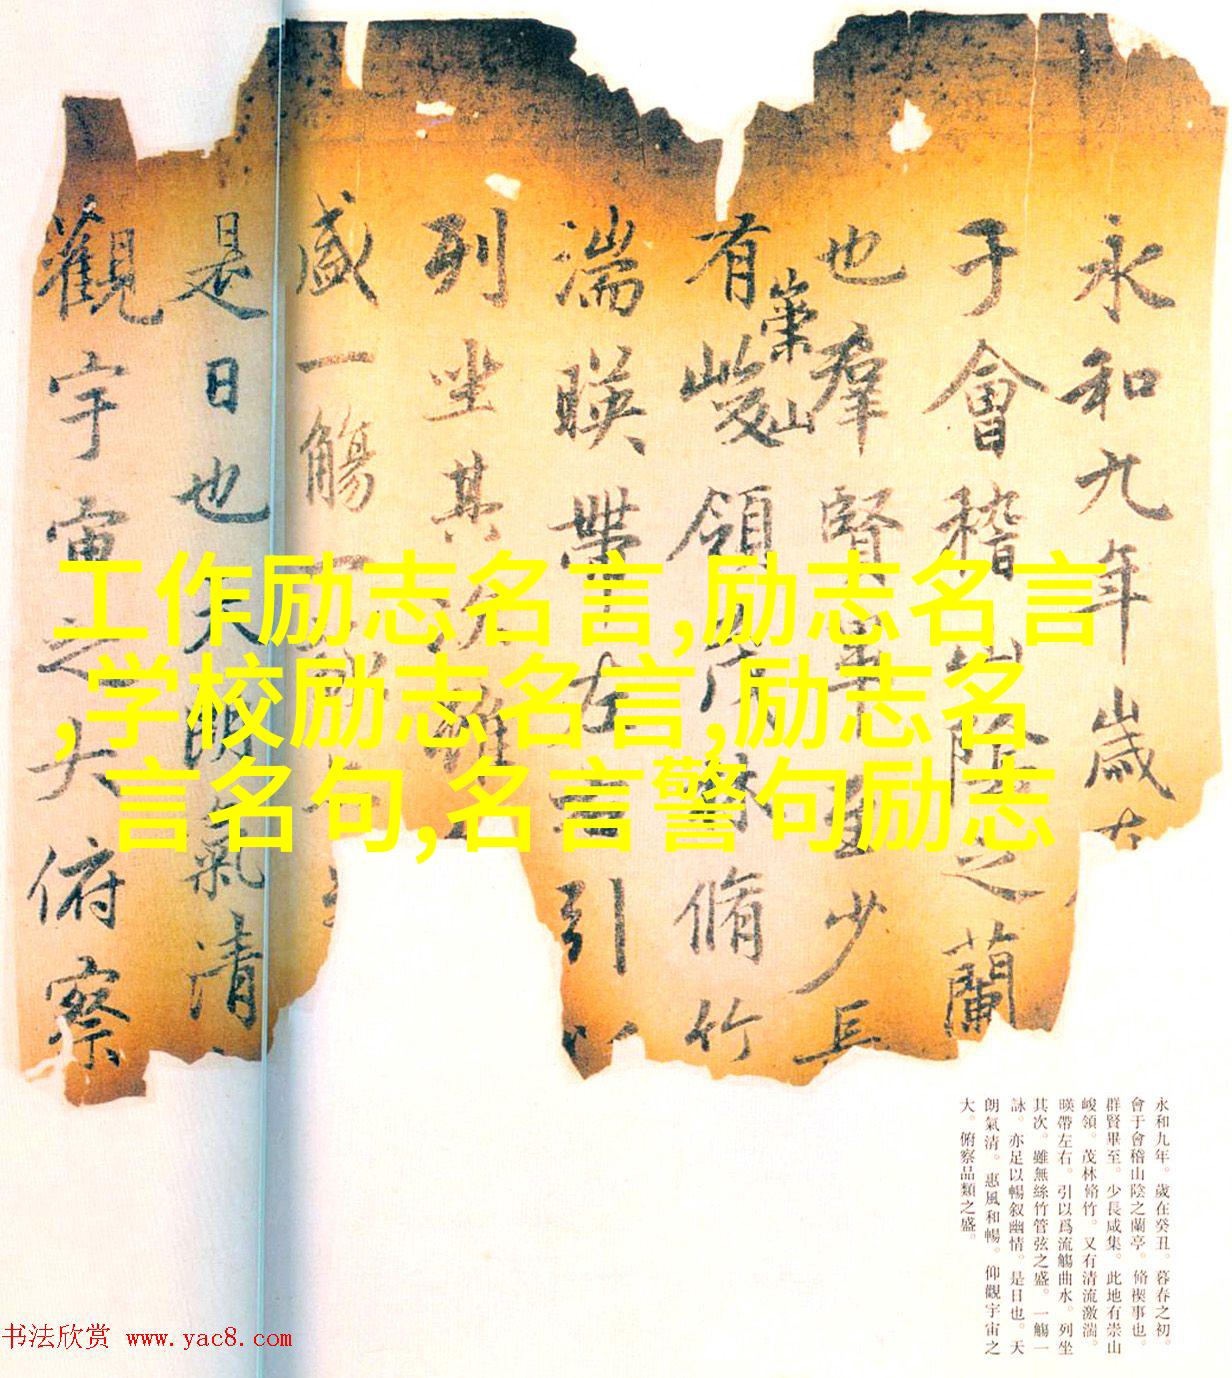 永和九年歲在
于會稽山陰之蘭
也羣賢畢至少長
有崇山峻領茂林脩竹
湍暎帶左右引以
列坐其次雖
盛一觴一詠
是日也天朗氣清
觀宇宙之大俯察
工作励志名言,励志名言
,学校励志名言,励志名
言名句,名言警句励志
永和九年。歲在癸丑。暮春之初。
會于會稽山陰之蘭亭。脩禊事也。
群賢畢至。少長咸集。此地有崇山
峻領。茂林脩竹。又有清流激湍。
暎帶左右。引以爲流觴曲水。列坐
其次。雖無絲竹管弦之盛。一觴一
詠。亦足以暢叙幽情。是日也。天
朗氣清。惠風和暢。仰觀宇宙之
大。俯察品類之盛。
书法欣赏 www.yac8.com